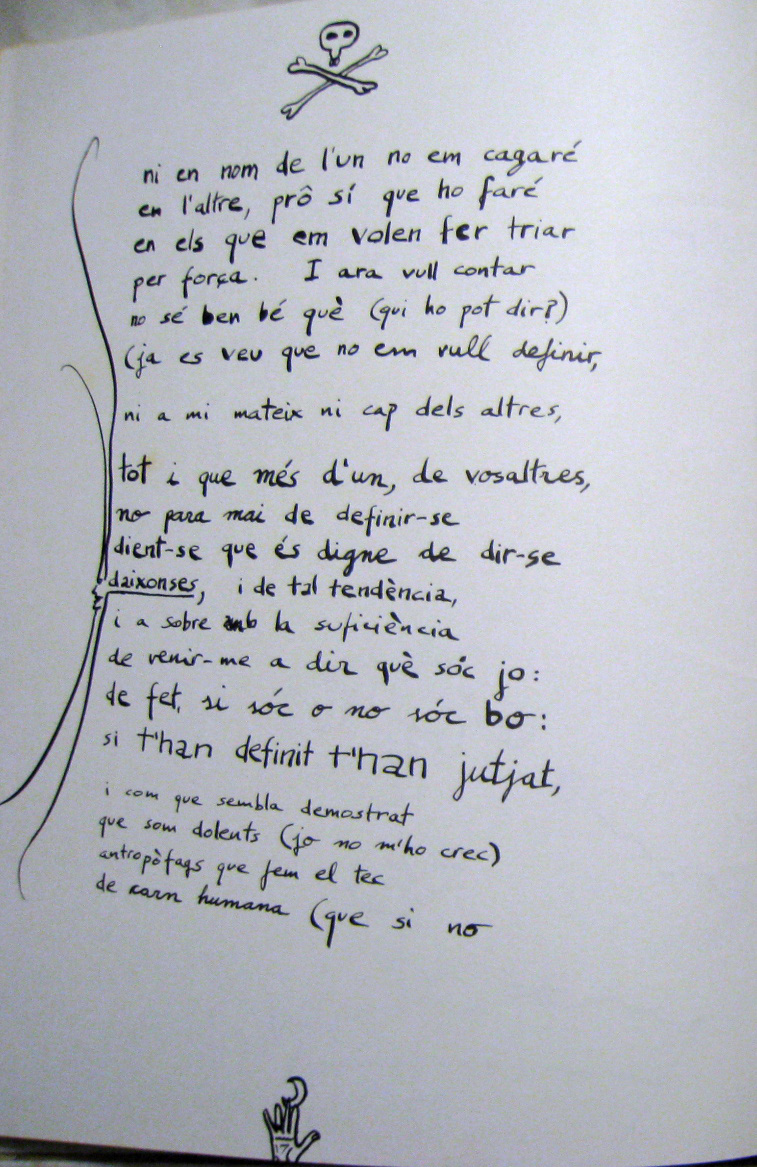 ni en nom de l'un no em cagaré
en l'altre, prô sí que ho faré
en els que em volen fer triar
per força. I ara vull contar
no sé ben bé què (qui ho pot dir?)
(ja es veu que no em vull definir,
ni a mi mateix ni cap dels altres,
tot i que més d'un, de vosaltres,
no para mai de definir-se
dient-se que és digne de dir-se
daixonses, i de tal tendència,
i a sobre amb la suficiència
de venir-me a dir què sóc jo:
de fet, si sóc o no sóc bo:
si t'han definit t'han jutjat,
i com que sembla demostrat
que som dolents (jo no m'ho crec)
antropòfags que fem el tec
de carn humana (que si no